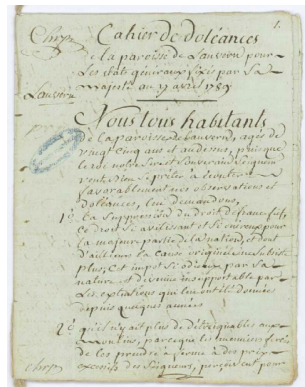 1.
Cahier de doléances
de la paroisse de Lauvern pour
Les états généraux fixés par Sa
Majesté au 27 avril 1789
Nous tous habitants
de la paroisse de Lauvern, agés de
vingt cinq ans et au dessus, puisque
le roi notre Sire et Souverain Seigneur
veut bien se prêter à écouter
favorablement nos observations et
doléances, lui demandons,
1° La Suppression du droit de franc fief,
ce droit si avilissant et si onéreux pour
la majeure partie de la nation, et dont
d'ailleurs la cause originaire ne subsiste
plus, Cet impot si odieux par sa
nature et devenu insupportable par
Les extentions qui lui ont été données
depuis quelques années
2° qu'il n'y ait plus de détraignables aux
moulins, parceque les meuniers forcés
de les prendre à ferme à des prix
excessifs des Seigneurs, pour